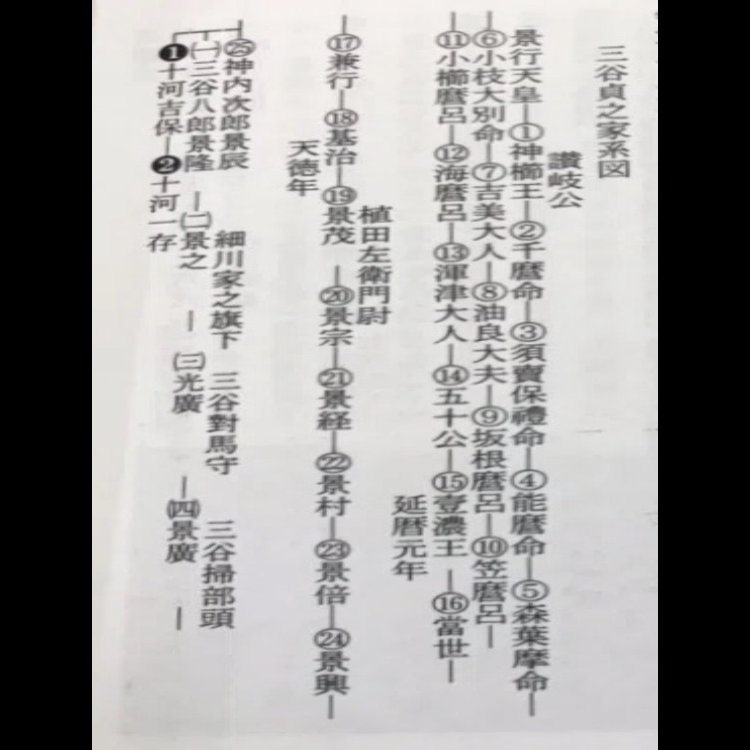 三谷貞之家系図
讃岐公
景行天皇―①神櫛王―②千麿命―③須賣保禮命―④能麿命―⑤森葉摩命―
⑥小枝大別命―⑦吉美大人―⑧油良大夫―⑨坂根麿呂―⑩笠麿呂―
⑪小櫛麿呂―⑫海麿呂―⑬渾津大人―⑭五十公―⑮壹濃王―⑯當世―
延暦元年
植田左衛門尉
⑰兼行―⑱基治―⑲景茂―⑳景宗―㉑景経―㉒景村―㉓景倍―㉔景興―
天徳年
㉕神内次郎景辰
細川家之旗下 三谷對馬守 三谷掃部頭
㈠三谷八郎景隆―㈡景之―㈢光廣―㈣景廣―
❶十河吉保―❷十河一存